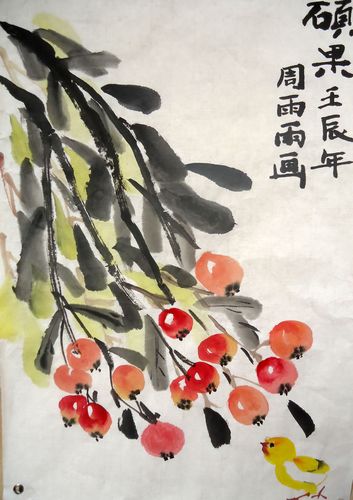 碩果壬辰年
周雨雨画